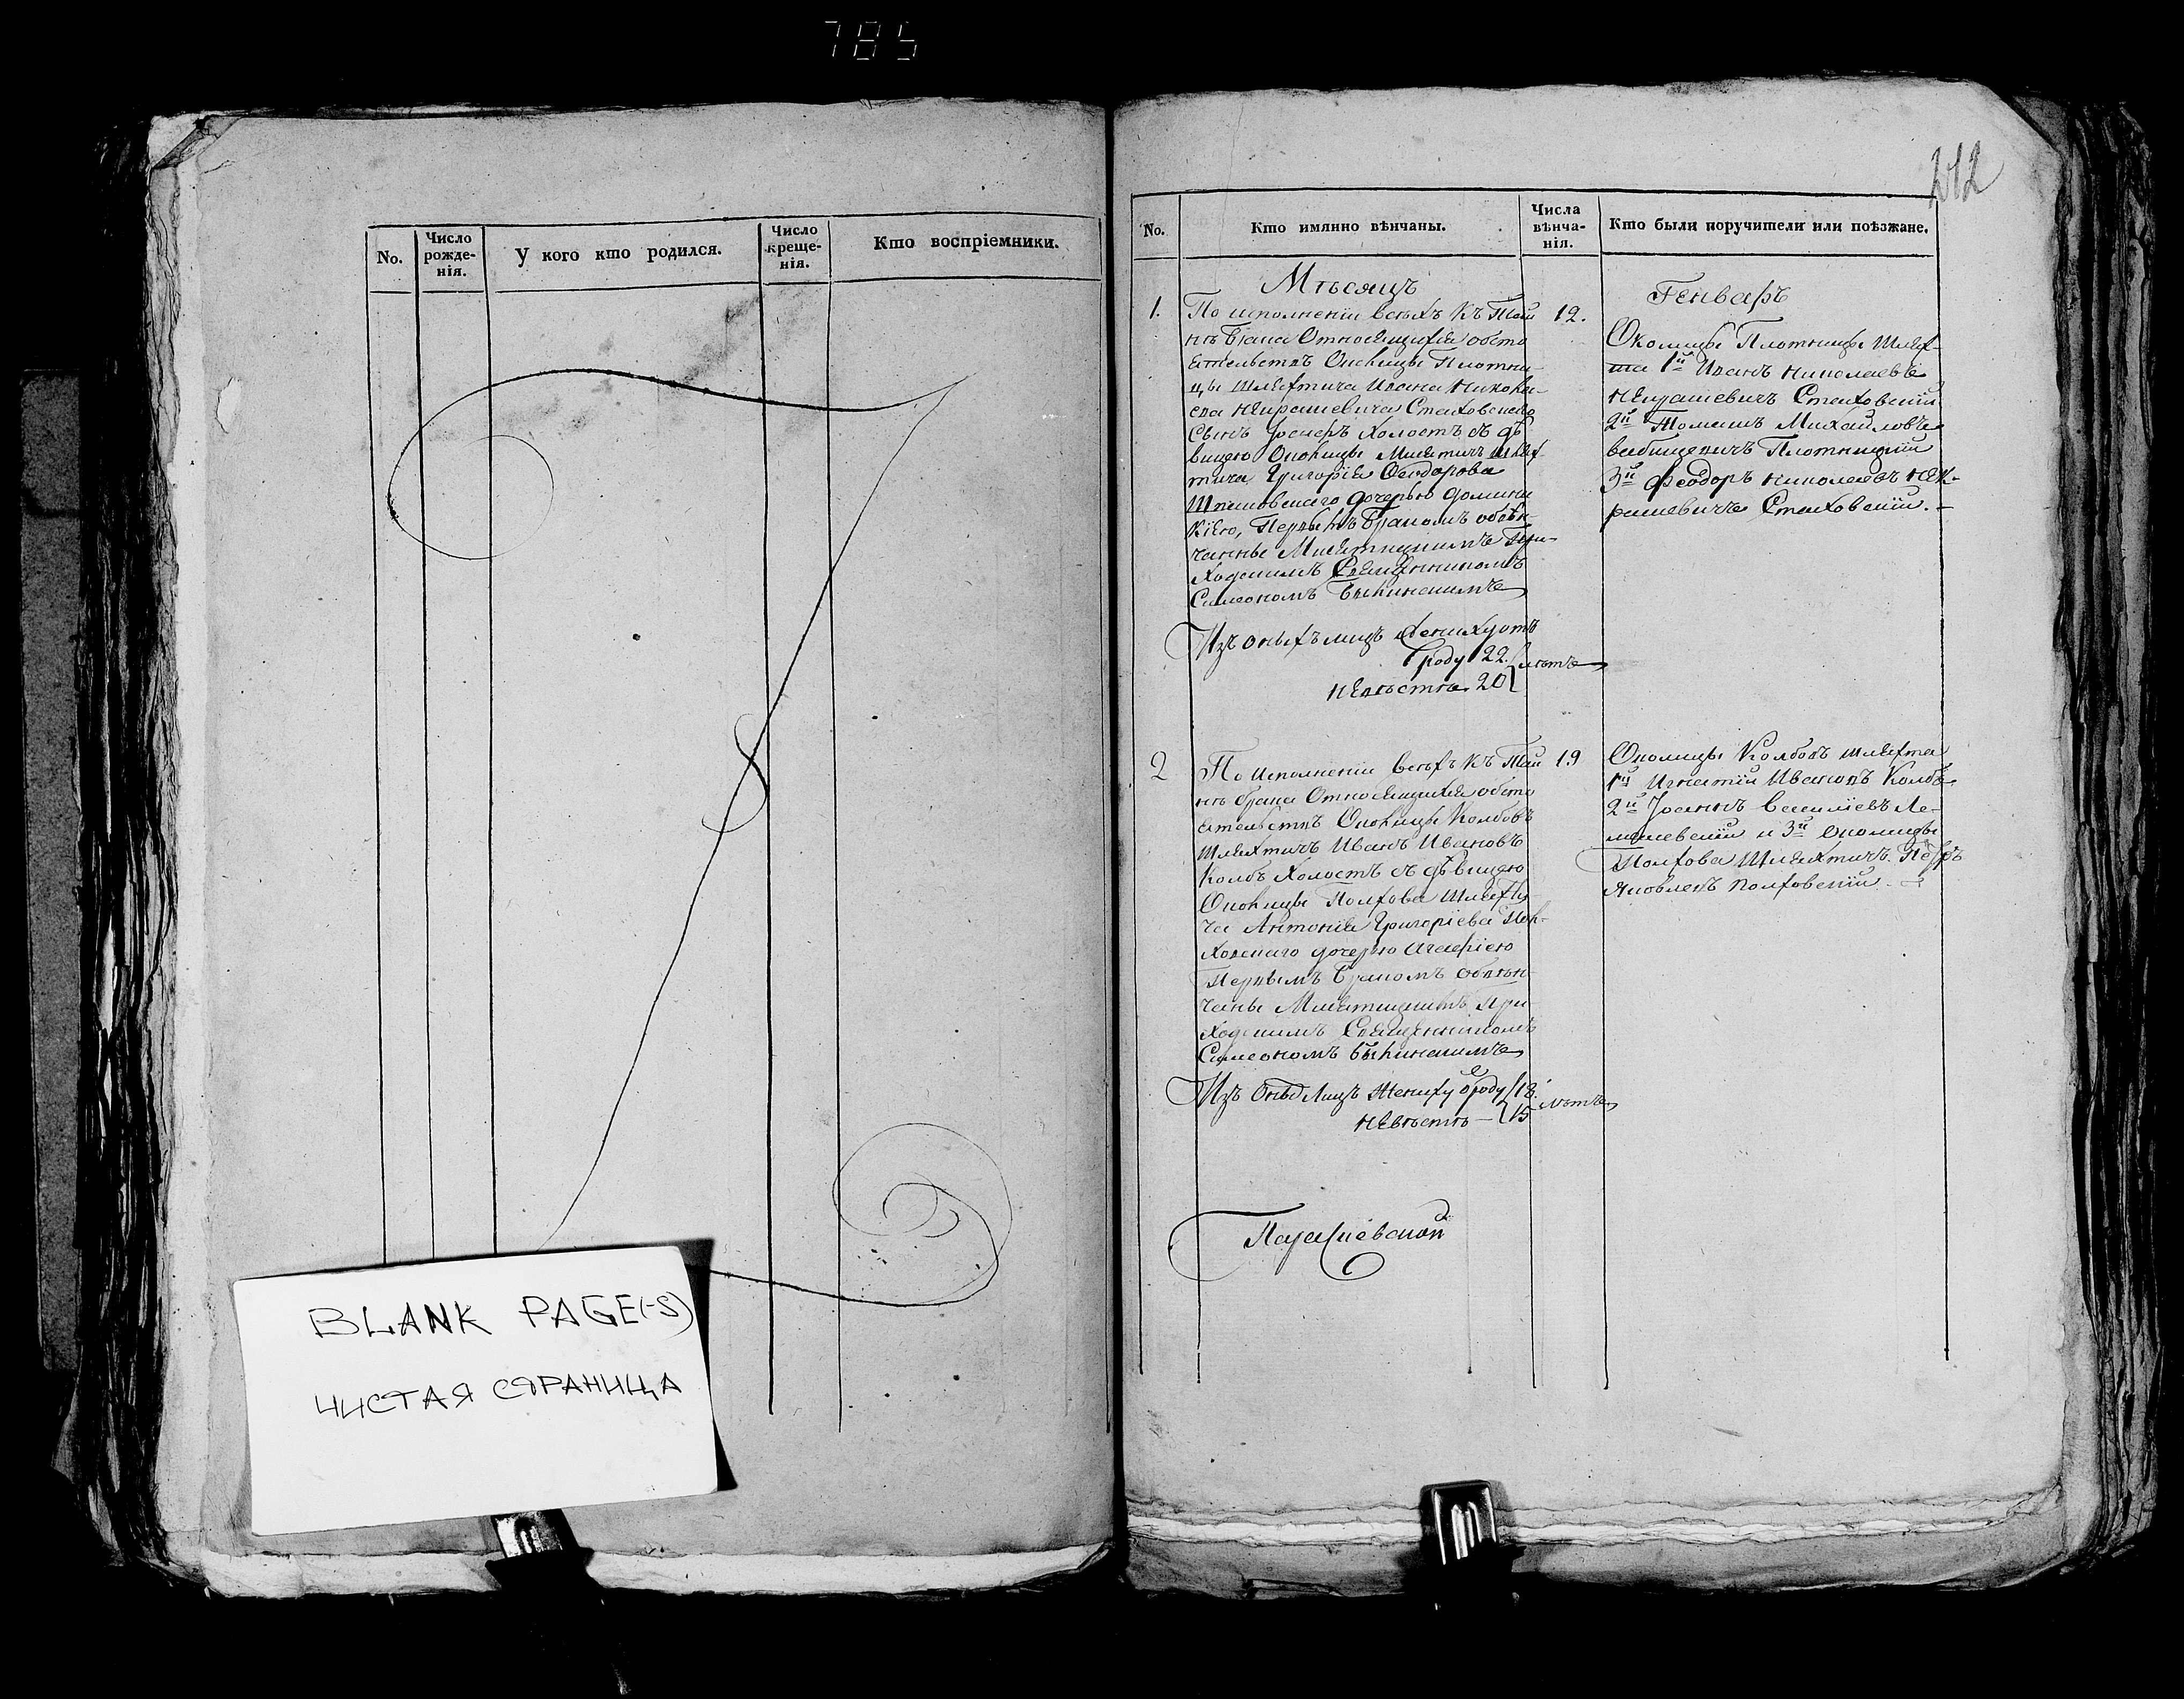 785
No.
Число рожде-нія.
У кого кто родился.
Число креще-нія.
Кто воспріемники.
BLANK PAGE(-S)
ЧИСТАЯ СТРАНИЦА
212
No.
Кто имянно вѣнчаны.
Числа вѣнча-нія.
Кто были поручители или поѣзжане.
Мѣсяцъ
Генварь
1.
По исполненіи всѣхъ къ Таи
нѣ Брака Относящихся обсто
ятельствъ Околицы Плотни
цы Шляхтича Ивана Никола-
ева Некрашевича Стаховскаго
Сынъ Іосифъ Холостъ съ дѣ
вицею Околицы Мlятичъ шлях
тича Григорія Феодорова
дочерью Домини
кіею, Первымъ бракомъ обвѣн-
чанны При-
ходскимъ Священникомъ
Симеономъ
Изъ оныхъ лицъ Жениху отъ
роду 22
невѣстѣ 20
лѣтъ
12.
Околицы Плотницы Шлях-
та 1й Иванъ Николаевъ
Некрашевичъ Стаховскій
2й Томашъ Михайловъ
Плотницкій
3й Феодоръ Николаевъ Нек-
рашевичъ Стаховскій.
2
По Исполненіи всѣхъ къ Таи
нѣ брака Относящихся обсто
ятельствъ Околицы Колбовъ
Шляхтичъ Иванъ Ивановъ
Колбъ Холостъ съ дѣвицею
Околицы Полхова Шляхти
ча Антонія Григоріева Пол-
ховскаго дочерью Агафіею
Первымъ Бракомъ обвѣн-
чаны При
ходскимъ Священникомъ
Симеономъ
Изъ Оныхъ Лицъ Жениху отроду 18
невѣстѣ — 15
лѣтъ
19
Околицы Колбовъ шляхта
1й Игнатій Ивановъ Колбъ
2й Іоаннъ Василіевъ Ле-
и 3й околицы
Полхова Шляхтичъ Петръ
Яковлевъ Полховскій